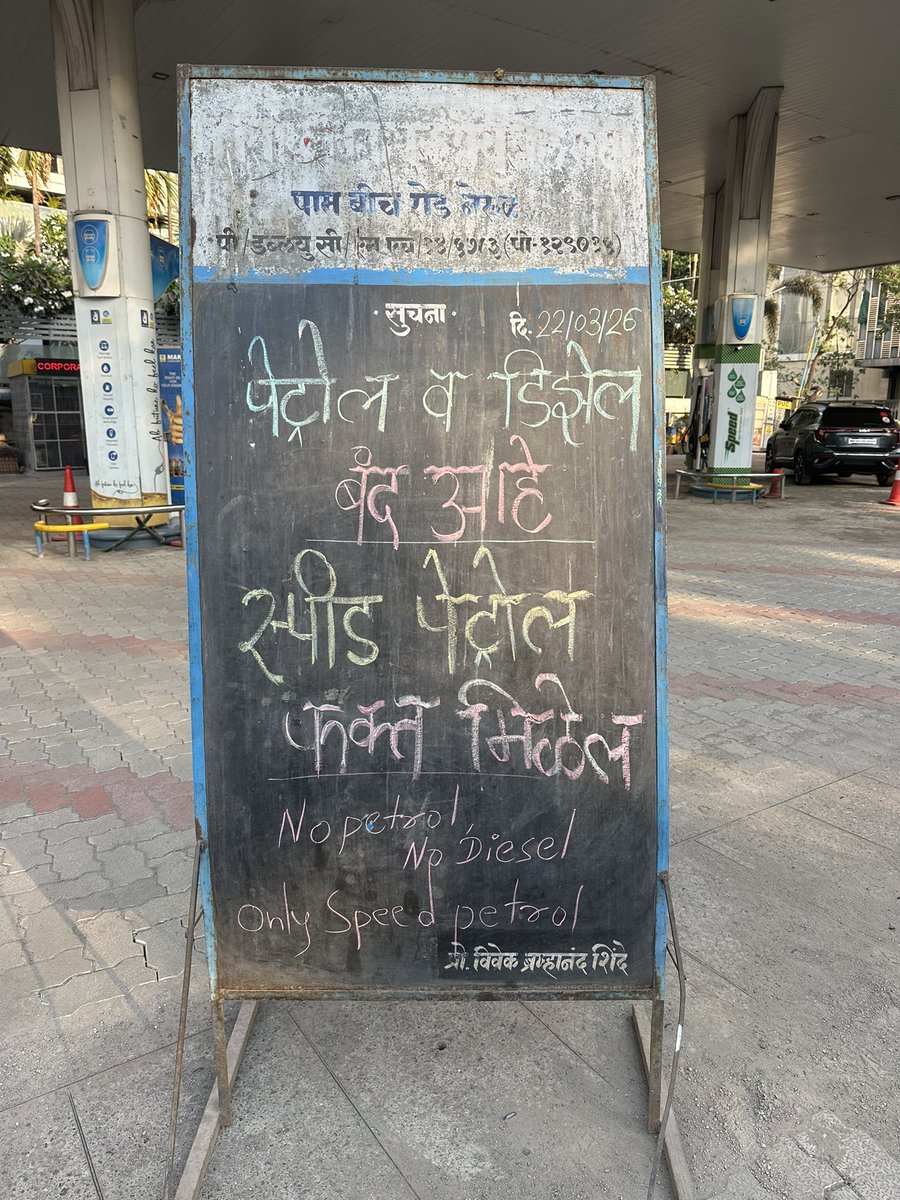 पाम बीच रोड नेरुळ
सुचना
दि. 22/03/26
पेट्रोल व डिझेल
बंद आहे
स्पीड पेट्रोल
फक्त मिळेल
No petrol,
No Diesel
only Speed petrol
प्रो. विवेक ब्रम्हानंद शिंदे
CORPORA
MAK
Speed